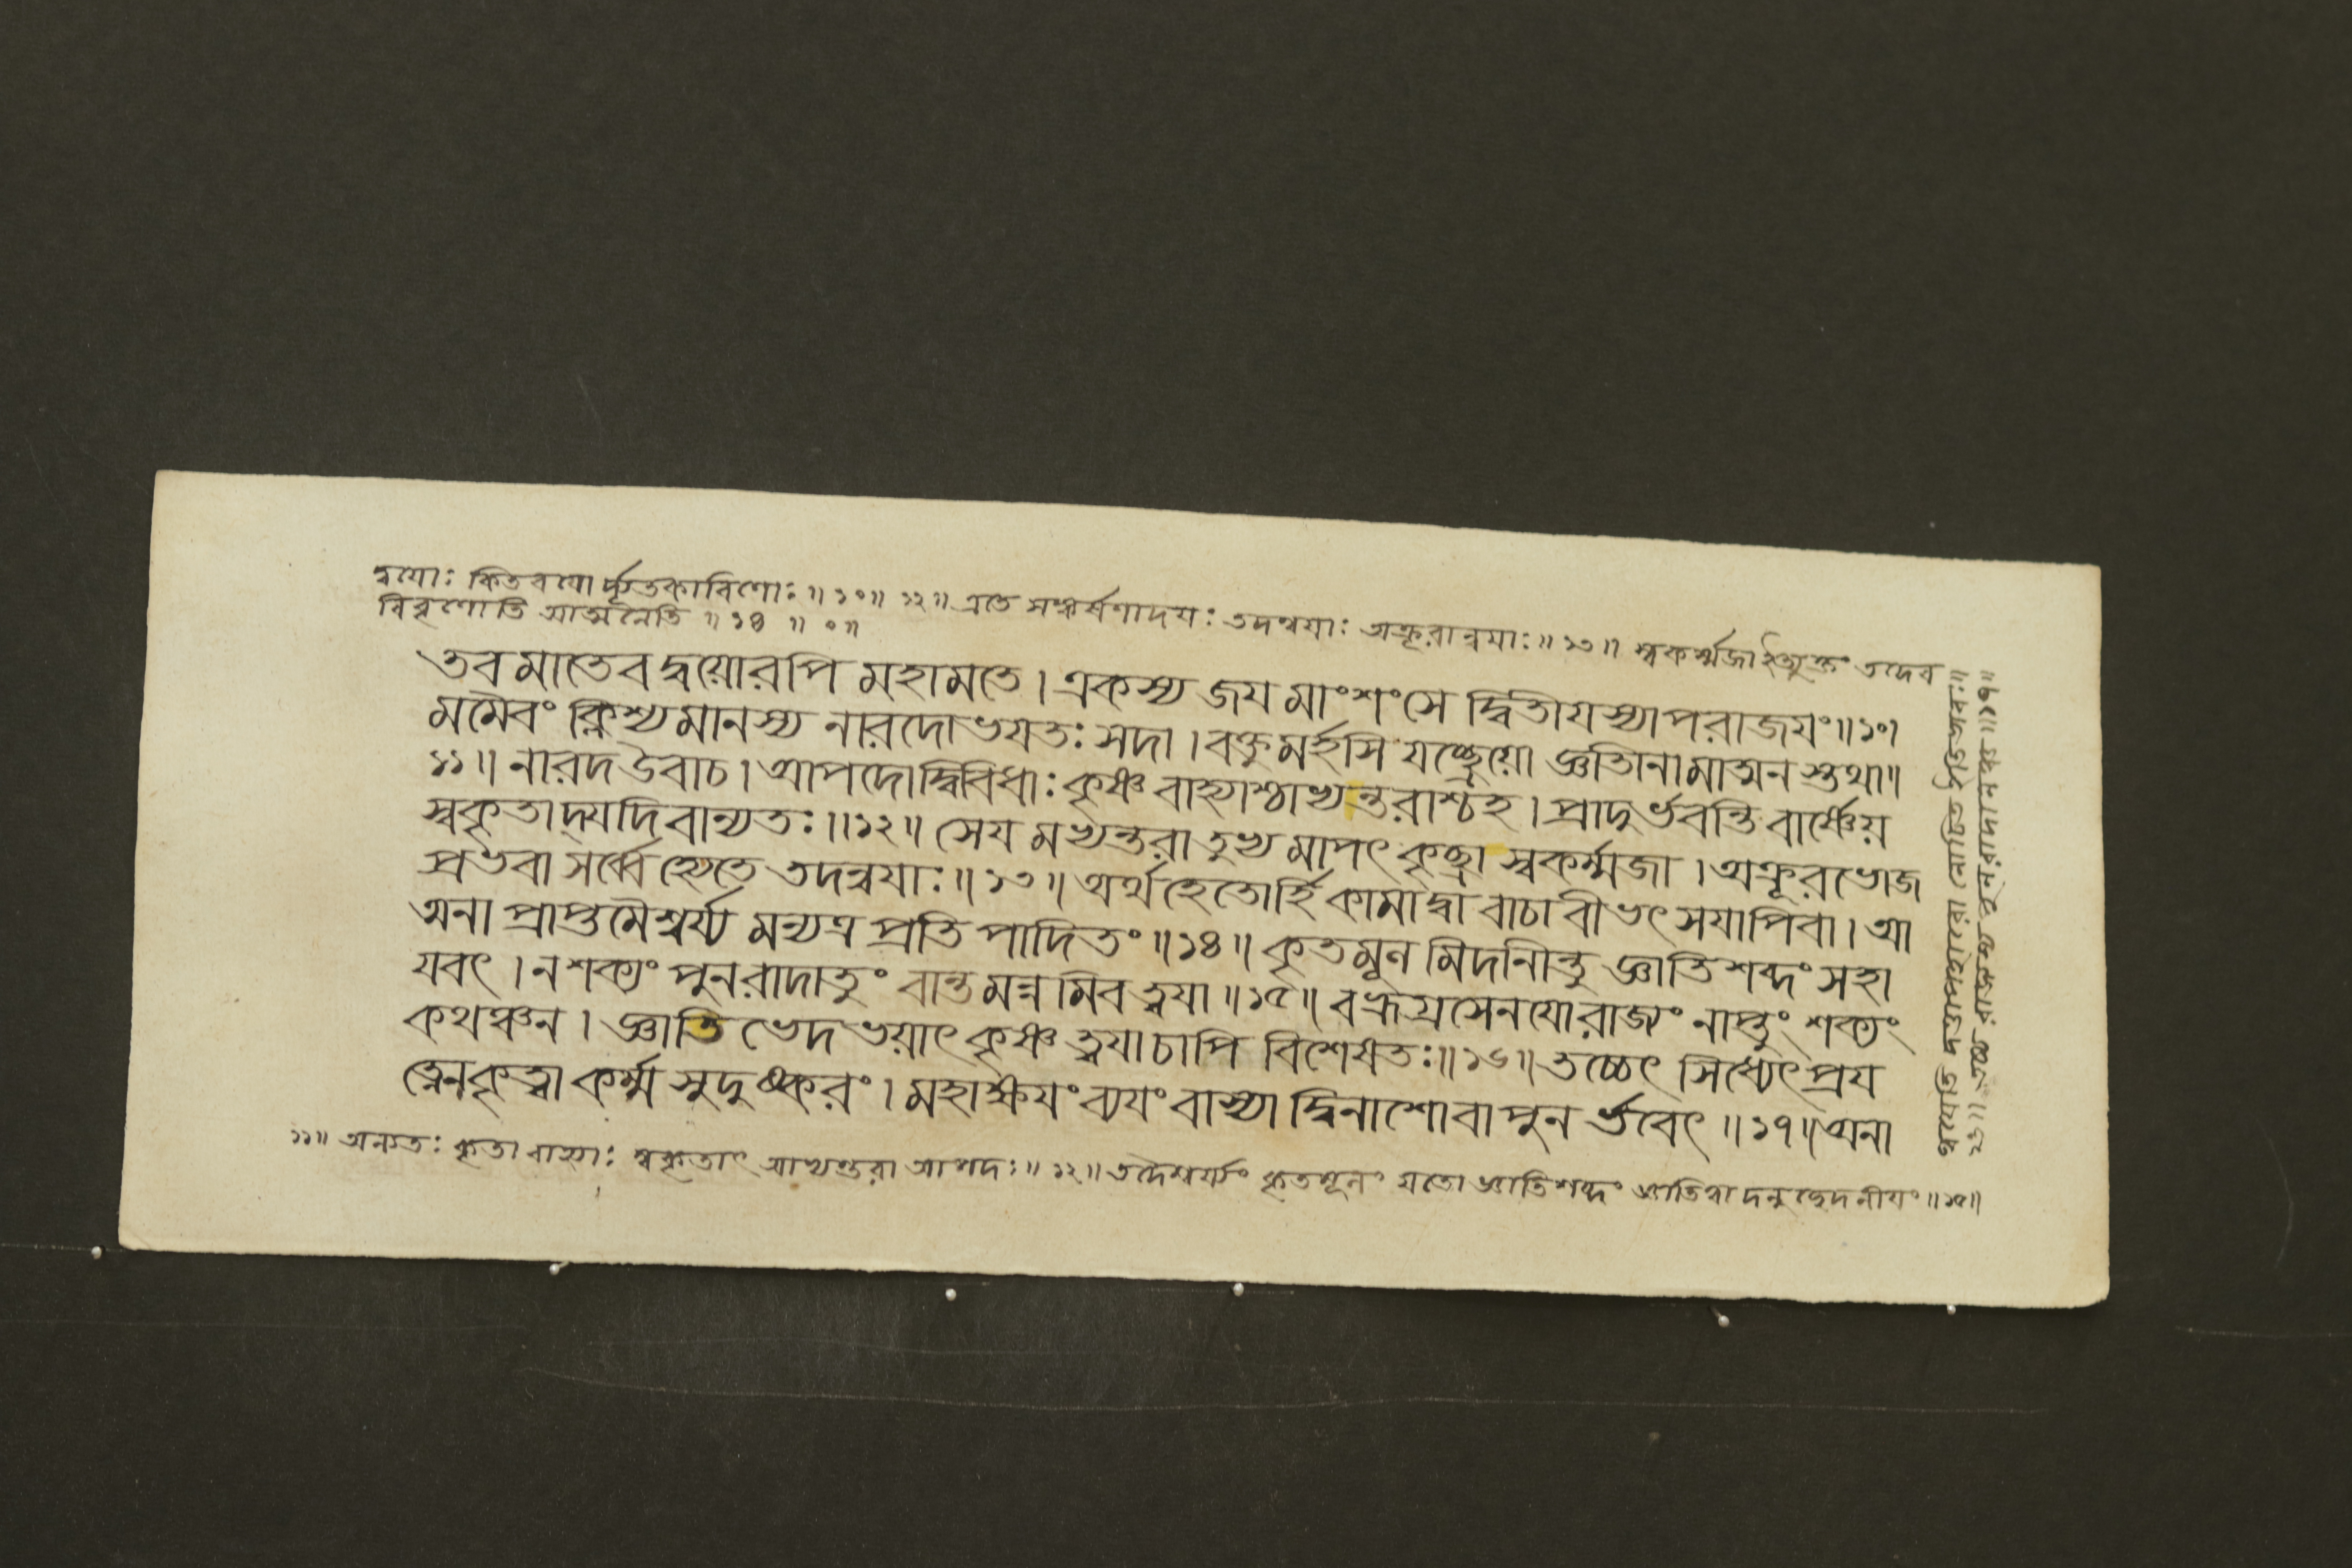 দ্বয়োঃ কিতবযোর্দ্যূতকারিণোঃ ॥ ১০॥ ১২॥ এতে সঙ্কর্ষণাদযঃ তদন্বযাঃ অক্রূরান্বযাঃ ॥ ১৩॥ স্বকর্ম্মজা তদেব
বিবৃণোতি আত্মনৈতি ॥ ১৪ ॥ ০ ॥
তব মাতেব দ্বয়োরপি মহামতে । একস্য জয মাংশংসে দ্বিতীযস্যাপরাজযং ॥ ১০।
মমৈবং ক্লিশ্যমানস্য নারদোভযতঃ সদা । বক্তুমর্হসি যচ্ছ্রেয়ো জ্ঞাতীনামাত্মন স্তুথা ॥
১১॥ নারদ উবাচ । আপদোদ্বিবিধাঃ কৃষ্ণ বাহ্যাশ্চাভ্যন্তরাশ্চহ । প্রাদুর্ভবন্তি বার্ষ্ণেয়
স্বকৃতাদ্যদিবান্যতঃ ॥ ১২॥ সেয মভ্যন্তরা তুভ্য মাপৎ কৃচ্ছ্রা স্বকর্ম্মজা । অক্রূরভোজ
প্রভবা সর্ব্বে হ্যেতে তদন্বযাঃ ॥ ১৩॥ অর্থহেতোর্হি কামাদ্বা বাচা বীভৎ সযাপিবা । আ
ত্মনা প্রাপ্তমৈশ্বর্য্য মন্যত্র প্রতি পাদিতং ॥ ১৪॥ কৃতমূন মিদনীন্তু জ্ঞাতি শব্দং সহা
যবৎ । ন শক্যং পুনরাদাতুং বান্ত মন্ন মিব ত্বযা ॥ ১৫॥ বভ্রুগ্রসেনযোরাজ্যং নাপ্তুং শক্যং
কথঞ্চন । জ্ঞাতি ভেদ ভয়াৎ কৃষ্ণ ত্বযা চাপি বিশেষতঃ ॥ ১৬॥ তচ্চেৎ সিধ্যেৎ প্রয
ত্নেন কৃত্বা কর্ম্ম সুদুষ্করং । মহাক্ষযং ব্যযং বাস্যা দ্বিনাশোবা পুন র্ভবেৎ ॥ ১৭॥ অনা
১১॥ অন্যতঃ কৃতা বাহ্যাঃ স্বকৃতাৎ আভ্যন্তরা আপদঃ ॥ ১২॥ তদৈশ্বর্য্যং কৃতমূলং যতো জ্ঞাতিশব্দং জ্ঞাতিত্বা দনুচ্ছেদনীযং ॥ ১৫॥
১৬॥ রাজ্যস্য পুনরাদানে ॥ ১৭॥